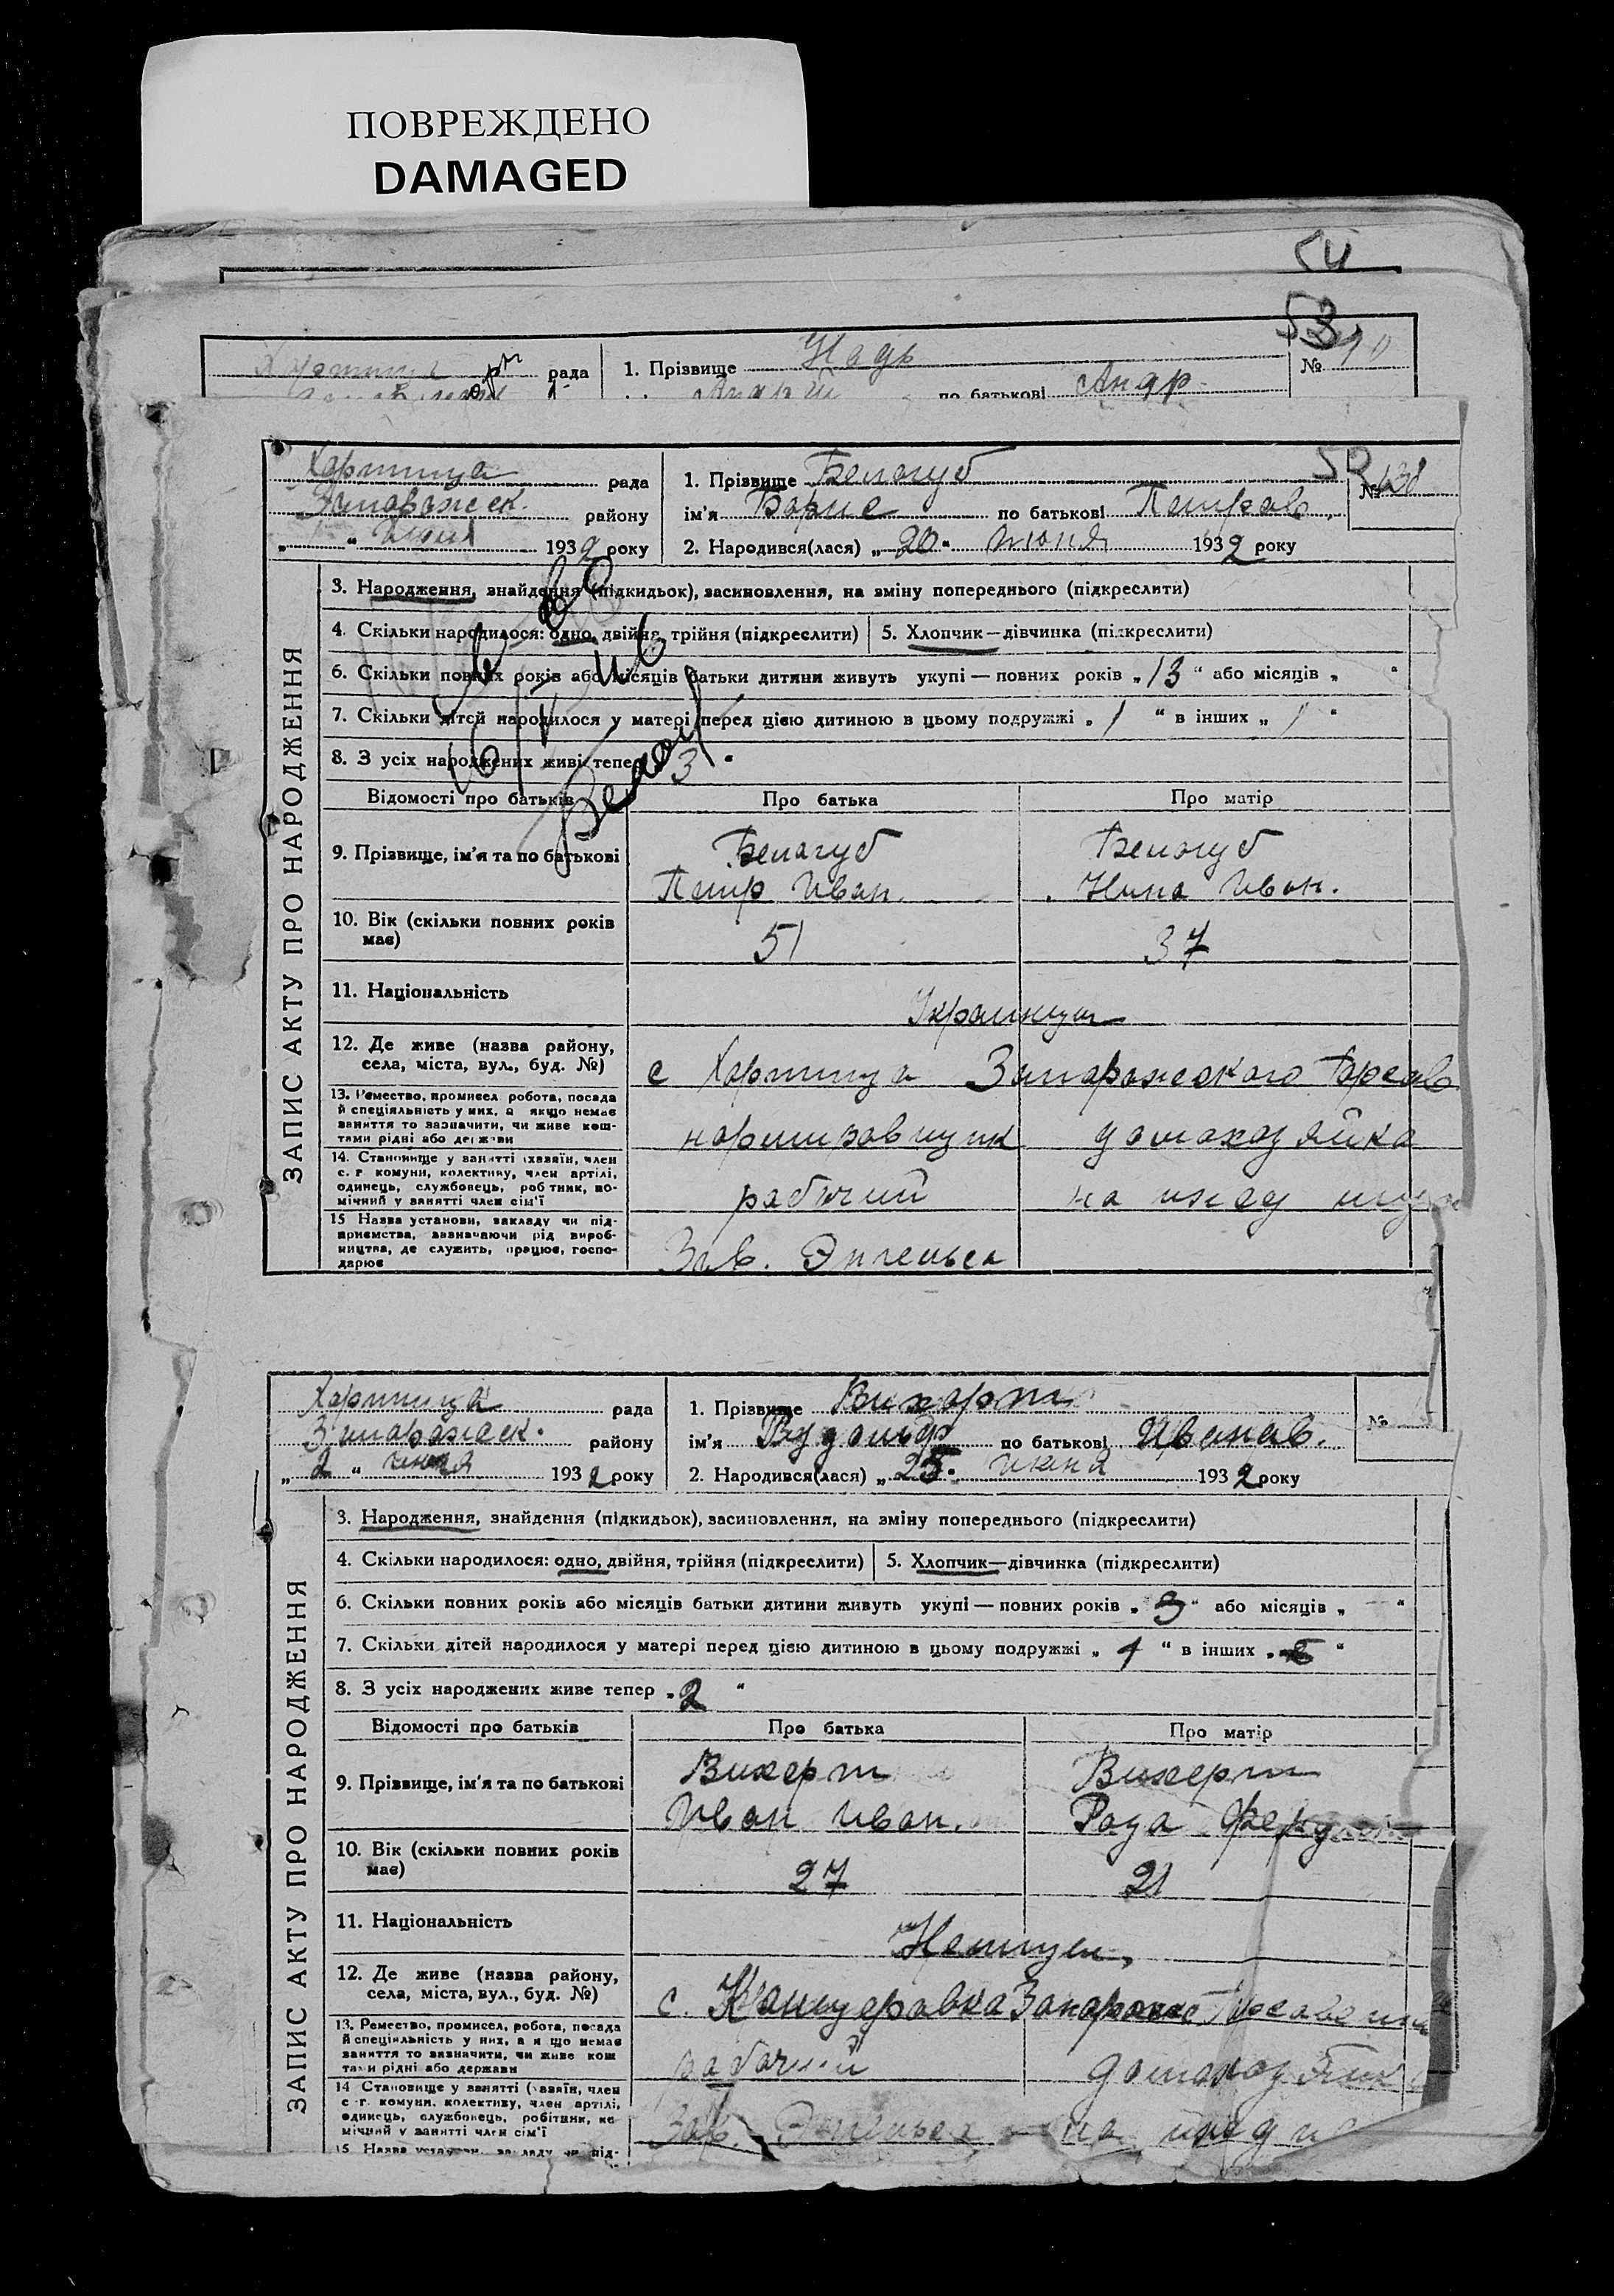 ПОВРЕЖДЕНО
DAMAGED
54
53
рада
1. Прізвище Надь
№ 90
по батькові Андр
Хортица рада
1. Прізвище Белогуб
50
№ 138
Запорожск. району
ім'я Борис по батькові Петров.
1932 року
2. Народився(лася) „ 20 “ июня 1932 року
3. Народження, знайдення (підкидьок), засиновлення, на зміну попереднього (підкреслити)
4. Скільки народилося: одно, двійня, трійня (підкреслити)
5. Хлопчик—дівчинка (підкреслити)
6. Скільки повних років або місяців батьки дитини живуть укупі — повних років „ 13 “ або місяців „ “
7. Скільки дітей народилося у матері перед цією дитиною в цьому подружжі „ 1 “ в інших „ 1 “
8. З усіх народжених живі тепер 3 “
ЗАПИС АКТУ ПРО НАРОДЖЕННЯ
Відомості про батьків
Про батька
Про матір
9. Прізвище, ім'я та по батькові
Белогуб
Петр Иван.
Белогуб
Нина Иван.
10. Вік (скільки повних років має)
51
37
11. Національність
Украинцы
12. Де живе (назва району, села, міста, вул., буд. №)
с Хортица Запорожского Горсов
13. Ремество, промисел, робота, посада
й спеціяльність у них, а якщо немає
заняття то зазначити, чи живе кош-
тами рідні або держави
нормировщик
домохозяйка
14. Становище у занятті (хазяїн, член
с. г. комуни, колективу, член артілі,
одинець, службовець, робітник, по-
мічний у занятті член сім'ї
рабочий
на ижд
15 Назва установи, закладу чи під-
приємства, зазначаючи рід вироб-
ництва, де служить, працює, госпо-
дарює
Зав. Энгельса
Хортица рада
1. Прізвище
№
Запорожск. району
ім'я по батькові Иванов.
„ 2 “ 1932 року
2. Народився(лася) „ 25 “ июня 1932 року
3. Народження, знайдення (підкидьок), засиновлення, на зміну попереднього (підкреслити)
4. Скільки народилося: одно, двійня, трійня (підкреслити)
5. Хлопчик—дівчинка (підкреслити)
6. Скільки повних років або місяців батьки дитини живуть укупі — повних років „ 3 “ або місяців „ — “
7. Скільки дітей народилося у матері перед цією дитиною в цьому подружжі „ 1 “ в інших „ “
8. З усіх народжених живе тепер „ 2 “
ЗАПИС АКТУ ПРО НАРОДЖЕННЯ
Відомості про батьків
Про батька
Про матір
9. Прізвище, ім'я та по батькові
Вихерт
Иван Иван.
Вихерт
Роза
10. Вік (скільки повних років має)
27
21
11. Національність
Немцы
12. Де живе (назва району, села, міста, вул., буд. №)
с. Канцеровка
13. Ремество, промисел, робота, посада
й спеціяльність у них, а якщо немає
заняття то зазначити, чи живе кош
тами рідні або держави
рабочий
14 Становище у занятті (хазяїн, член
с.-г. комуни, колективу, член артілі,
одинець, службовець, робітник, по
мічний у занятті член сім'ї
Зав. Энгельса
15. Назва установи, закладу чи під-